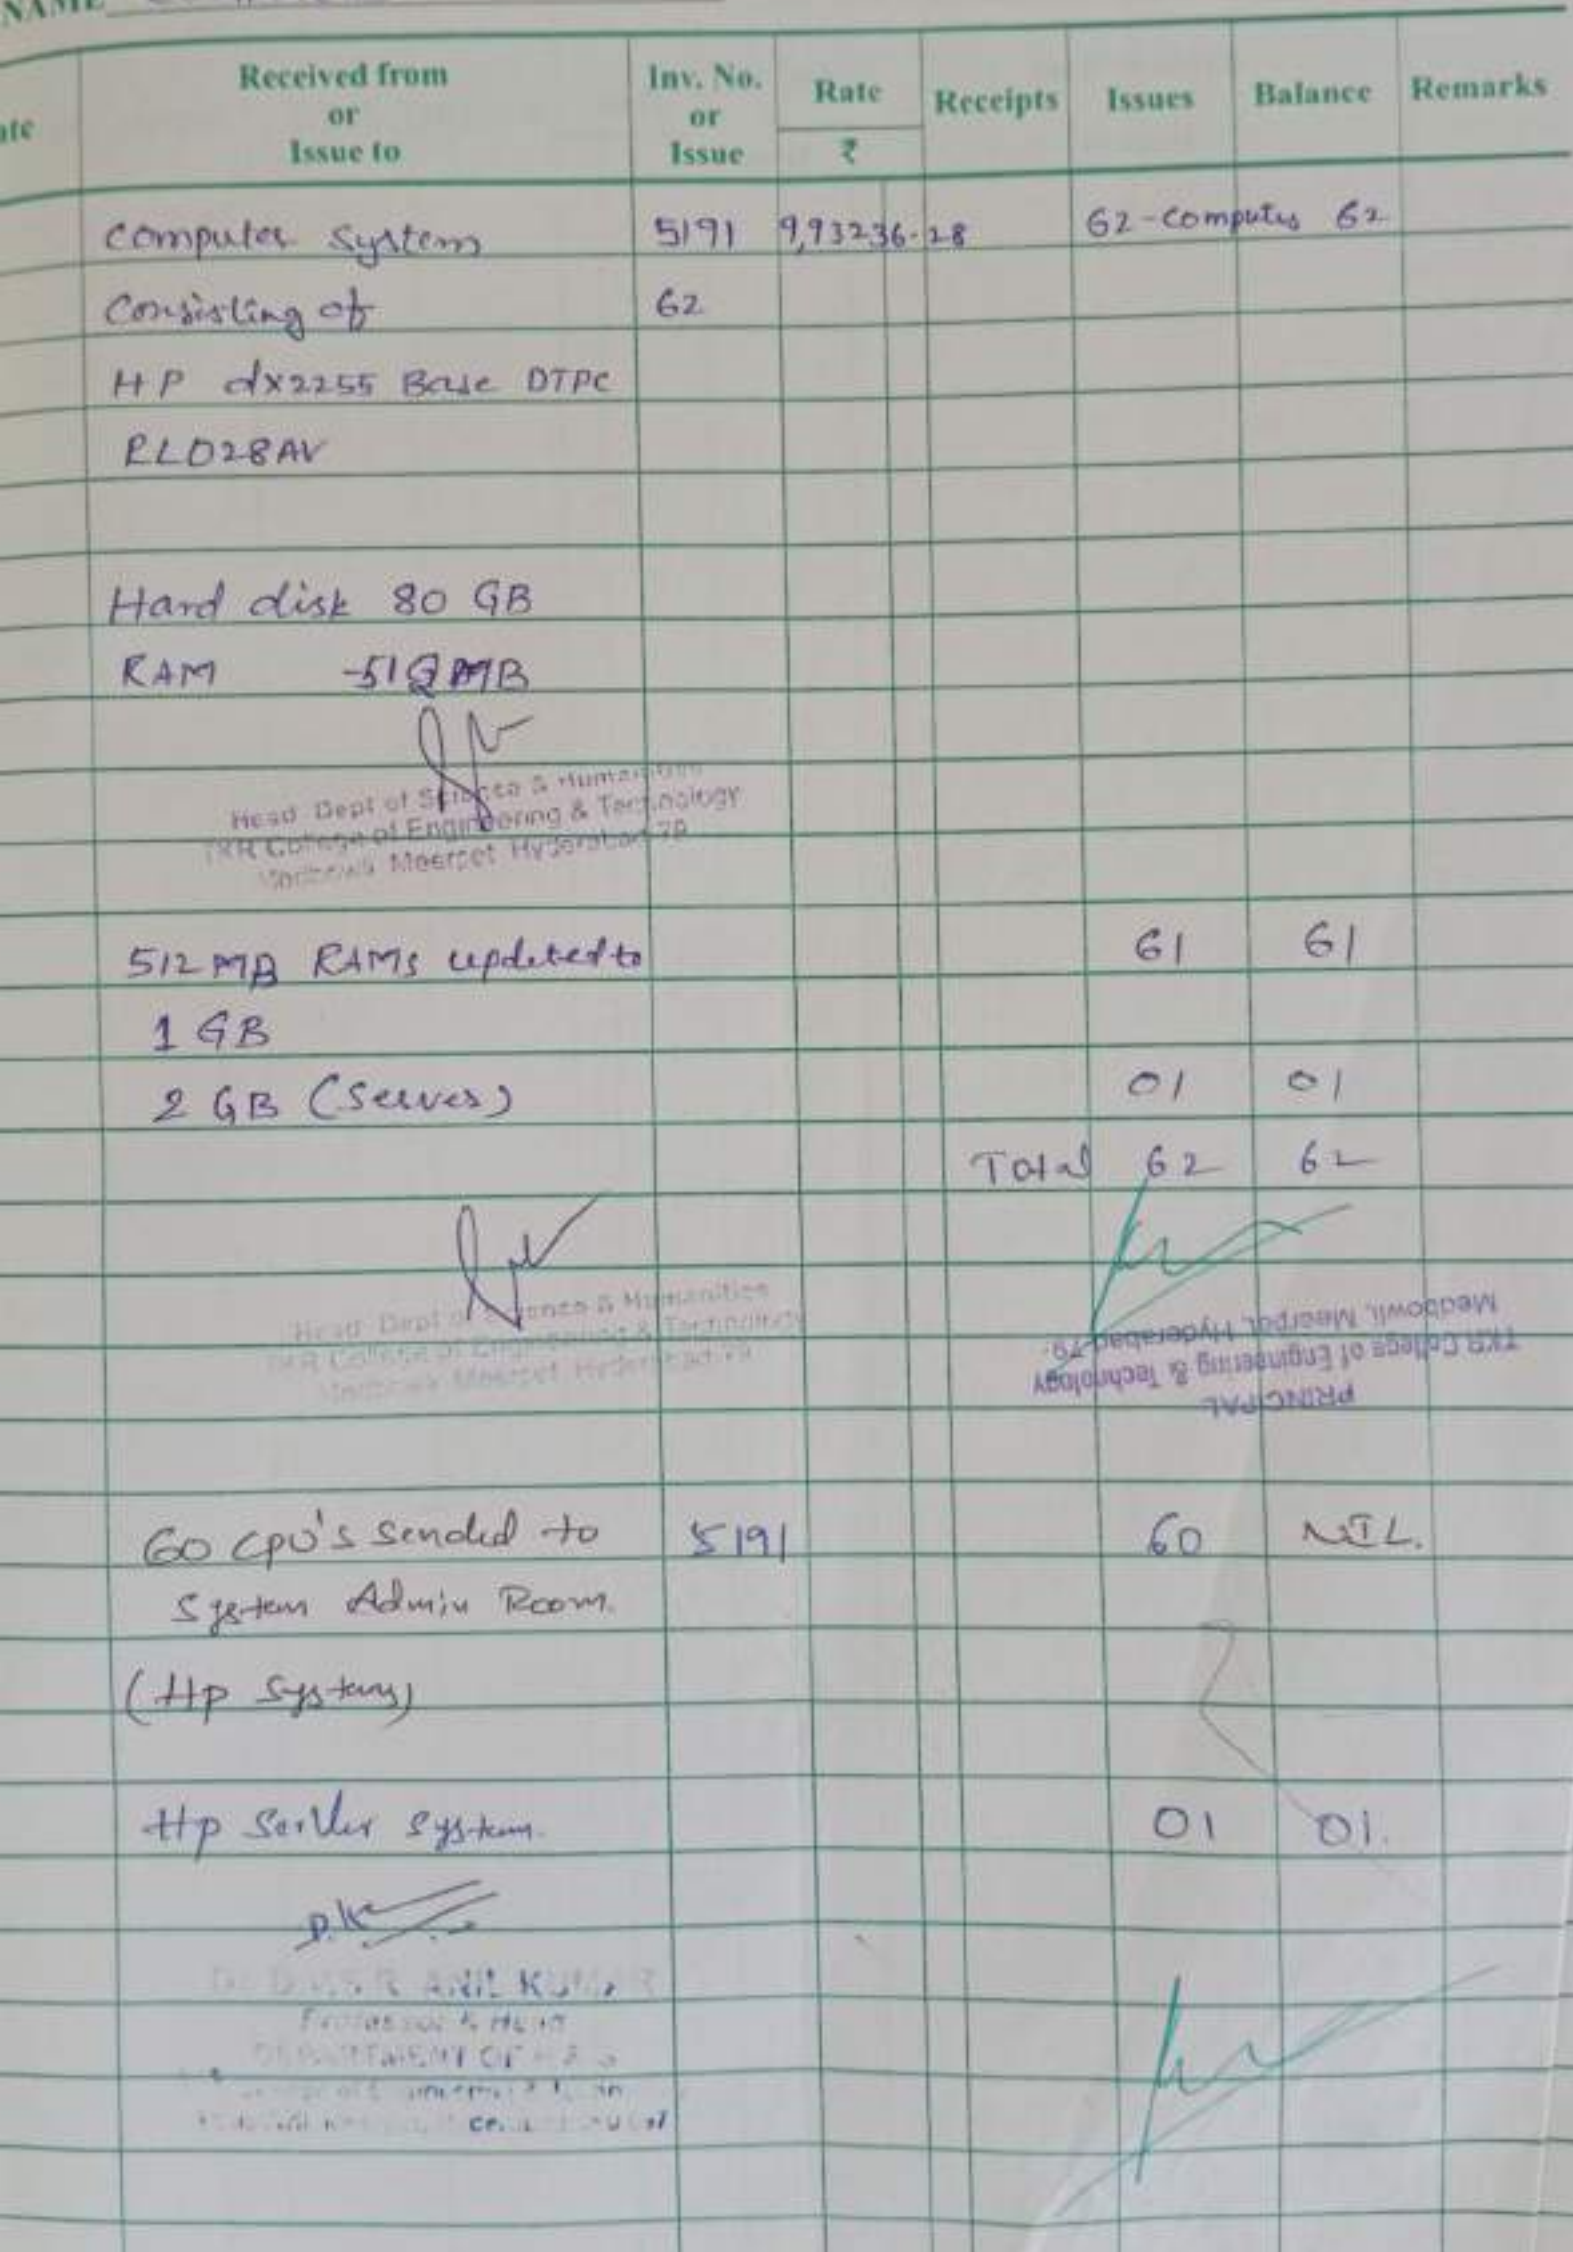 NAME
Received from or Issue to Inv. No. or Issue Rate ₹ Receipts Issues Balance Remarks
Computer System 5191 9,93236-28 62-Computes 62
Consisting of 62
HP dx2255 Base DTPC
RLD28AV
Hard disk 80 GB
RAM -512 MB
Head Dept of Science & Humanities
TKR College of Engineering & Technology
Meerpet Hyderabad-79
512 MB RAMs updated to 61 61
1 GB
2 GB (Server) 01 01
Total 62 62
Head Dept of Science & Humanities
TKR College of Engineering & Technology
Meerpet Hyderabad-79
PRINCIPAL
TKR College of Engineering & Technology
Medbowli, Meerpet, Hyderabad-79.
60 CPU's Sended to 5191 60 NIL.
System Admin Room.
(Hp Systems)
Hp Server System. 01 01.
ANIL KUMAR
DEPARTMENT OF